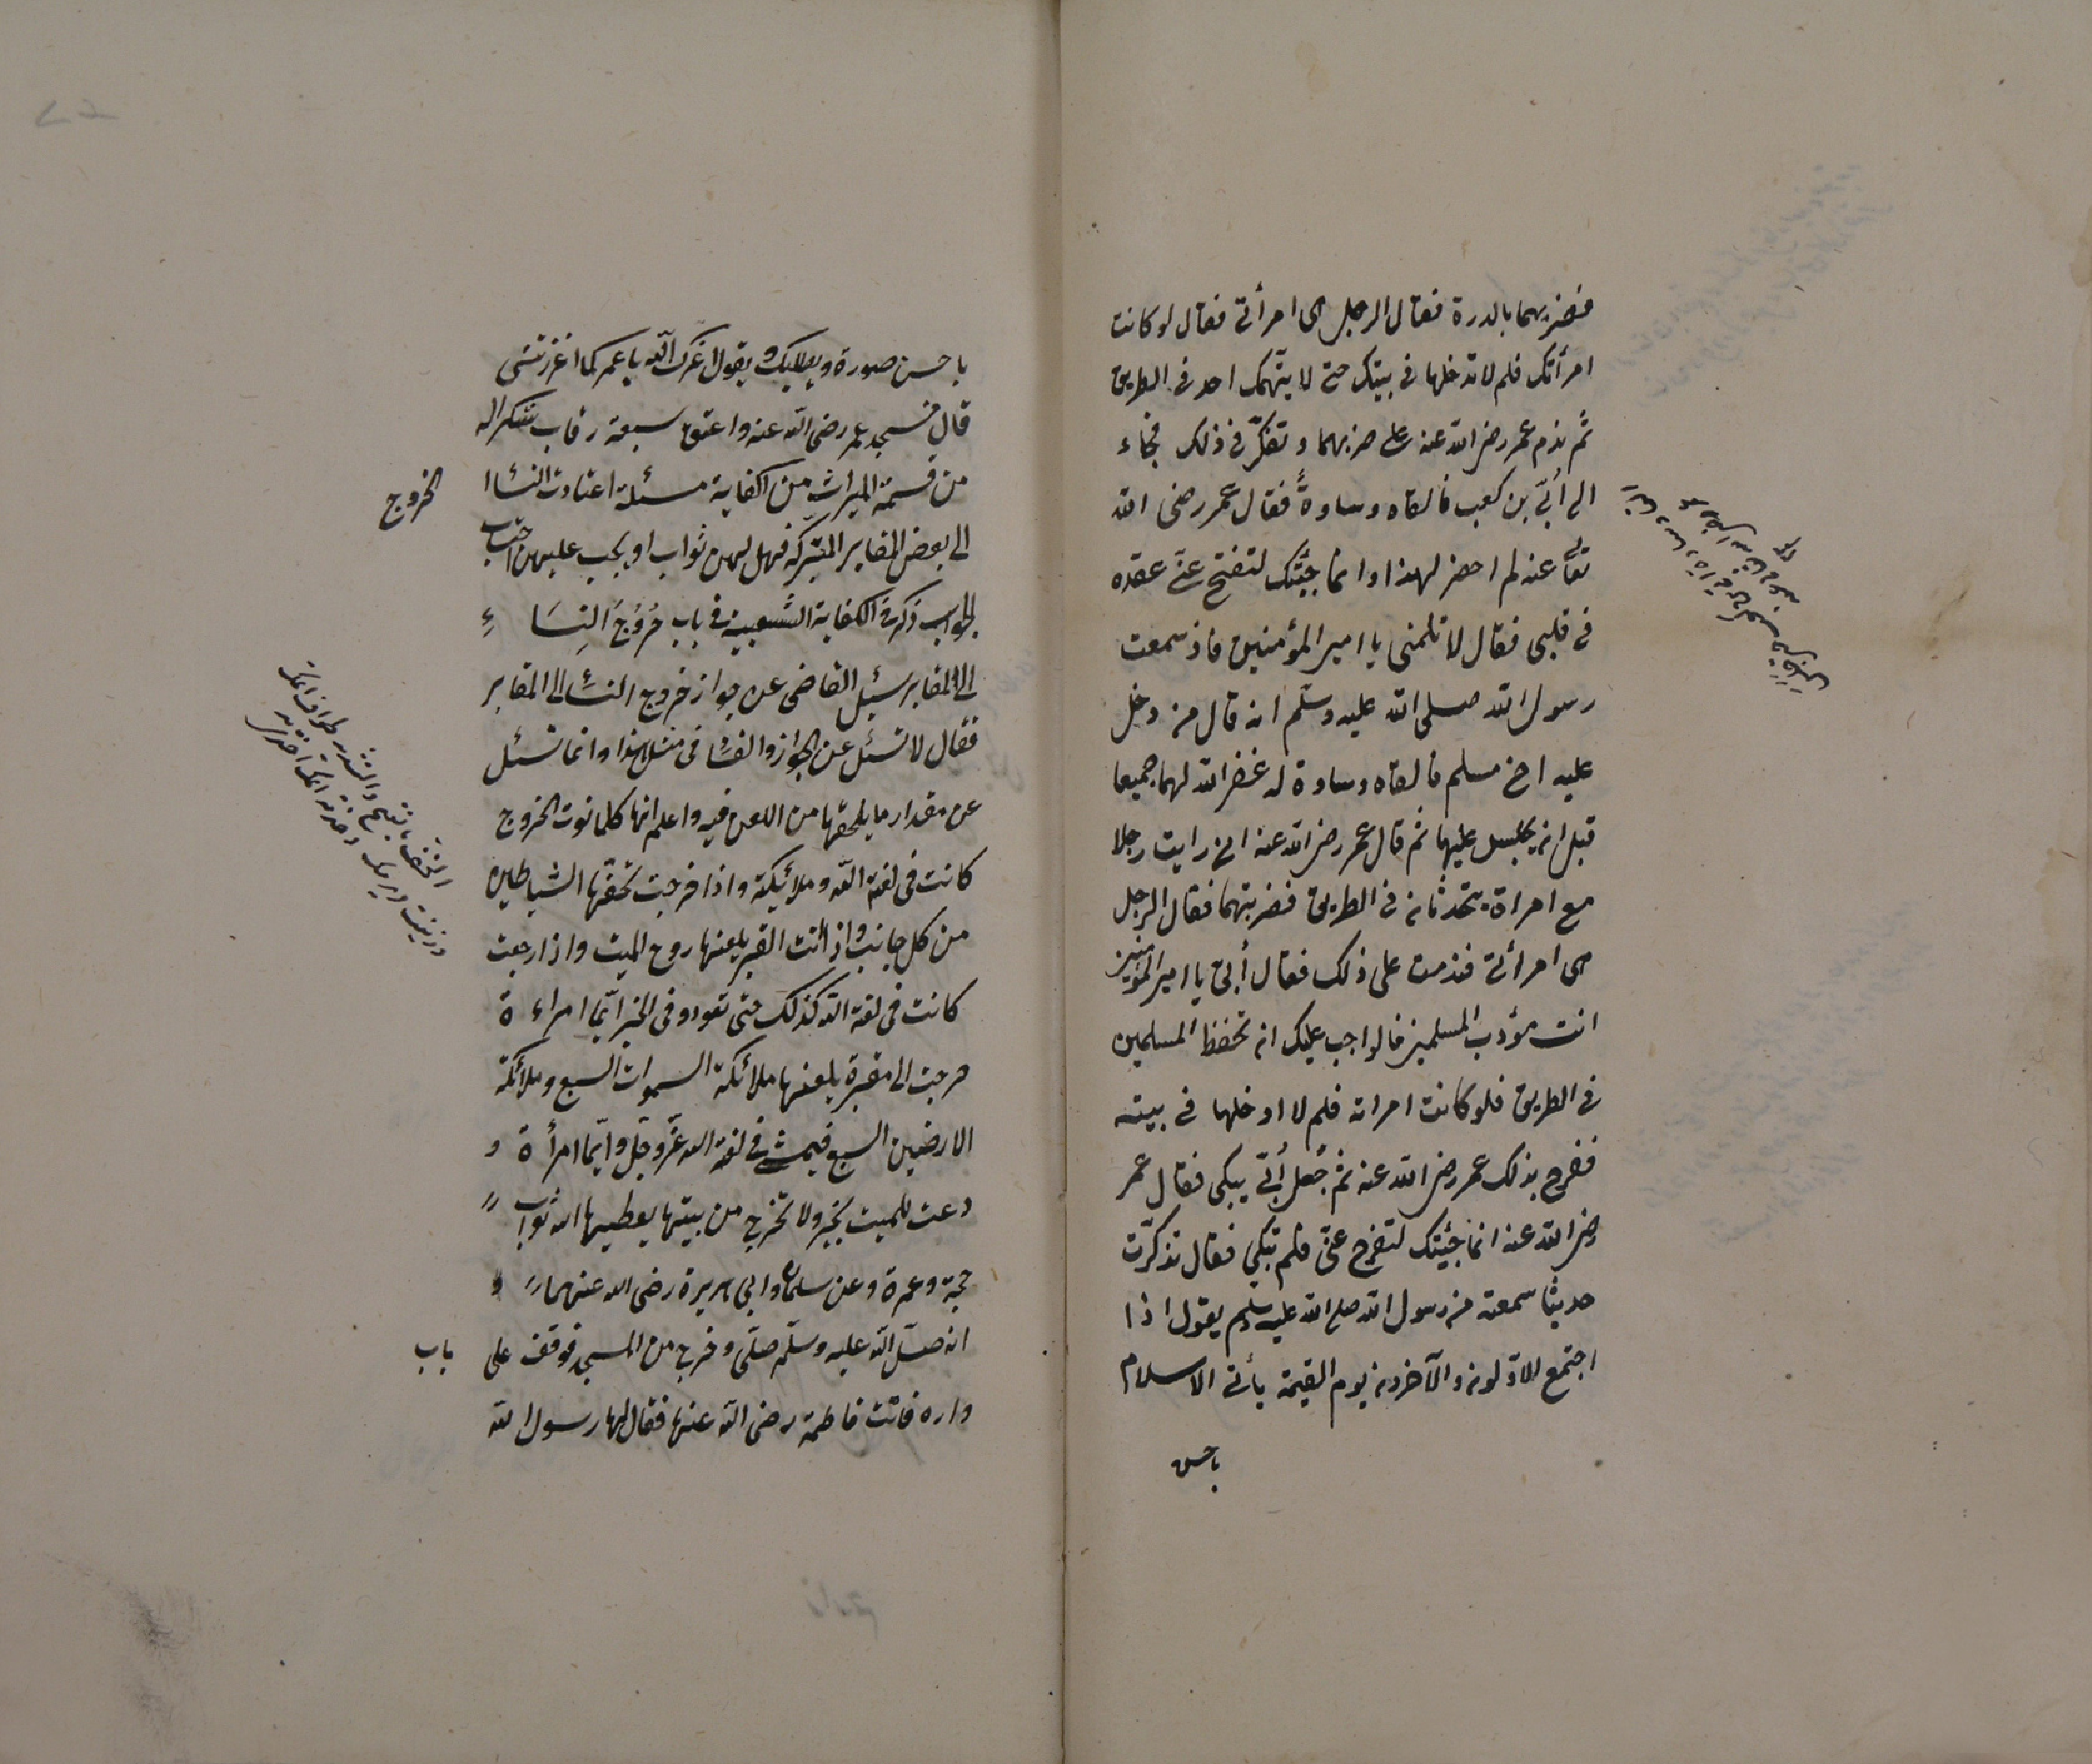 فضربهما بالدرة فقال الرجل هى امرأتى فقال لو كانت
امرأتك فلم لا تدخلها فى بيتك حتى لا يتهمك احد فى الطريق
ثم ندم عمر رضى الله عنه على ضربهما وتفكّر فى ذلك فجاء
الى اُبَىّ بن كعب فالقاه وسادةً فقال عمر رضى الله
تعالى عنه لم احضر لهذا وانما جئتك لتفتح عنّى عقده
فى قلبى فقال لا تلمنى يا امير المؤمنين فاذ سمعت
رسول الله صلى الله عليه وسلّم انه قال من دخل
عليه اخ مسلم فالقاه وسادة له غفر الله لهما جميعا
قبل ان يجلس عليها ثم قال عمر رضى الله عنه انى رايت رجلا
مع امراة يتحدثان فى الطريق فضربتهما فقال الرجل
هى امرأتى فندمت على ذلك فقال اُبىّ يا امير المؤمنين
انت مؤدب المسلمين فالواجب عليك ان تحفظ المسلمين
فى الطريق فلو كانت امراته فلم لا ادخلها فى بيته
ففرح بذلك عمر رضى الله عنه ثم جعل اُبَىّ يبكى فقال عمر
رضى الله عنه انما جئتك لتفرح عنّى فلم تبكى فقال تذكّرت
حديثا سمعته من رسول الله صلى الله عليه وسلم يقول اذا
اجتمع الاوّلون والآخرون يوم القيمة يأتى الاسلام
باحسن
باحسن صورة و يقول اعزك الله يا عمر كما اعززتنى
قال فسجد عمر رضى الله عنه واعتق سبعة رقاب شكرا له
من قسمة الميراث من الكفاية مسئلة اعتادت النساء
الخروج
الى بعض المقابر المتبركة فهل لهن ثواب او يجب عليهن اجتناب
الجواب ذكر فى الكفاية الشعبية فى باب خُرُوج النِسَاءِ
الى المقابر سئل القاضى عن جواز خروج النساء الى المقابر
فقال لا تسئل عن الجواز والفساد فى مثل هذا وانما تسئل
عن مقدار ما يلحقها من اللعن فيه واعلم انها كلما نوت الخروج
كانت فى لعنة الله وملائيكته واذا خرجت تحفّها الشياطين
من كل جانب واذا اتت القبر يلعنها روح الميت واذا رجعت
كانت فى لعنة الله كذلك حتى تعود وفى الخبر ايّما امراءة
خرجت الى مقبرة يلعنها ملائكة السموات السبع وملائكة
الارضين السبع فيمشى فى لعنة الله عزّ وجلّ وايّما امرأة و
دعت للميت بخير ولا تخرج من بيتها يعطيها الله ثواب
حجة وعمرة وعن سلمان وابى هريرة رضى الله عنهما
انه صلّى الله عليه وسلّم صلّى وخرج من المسجد فوقف على
باب
داره فاتت فاطمة رضى الله عنها فقال لها رسول الله